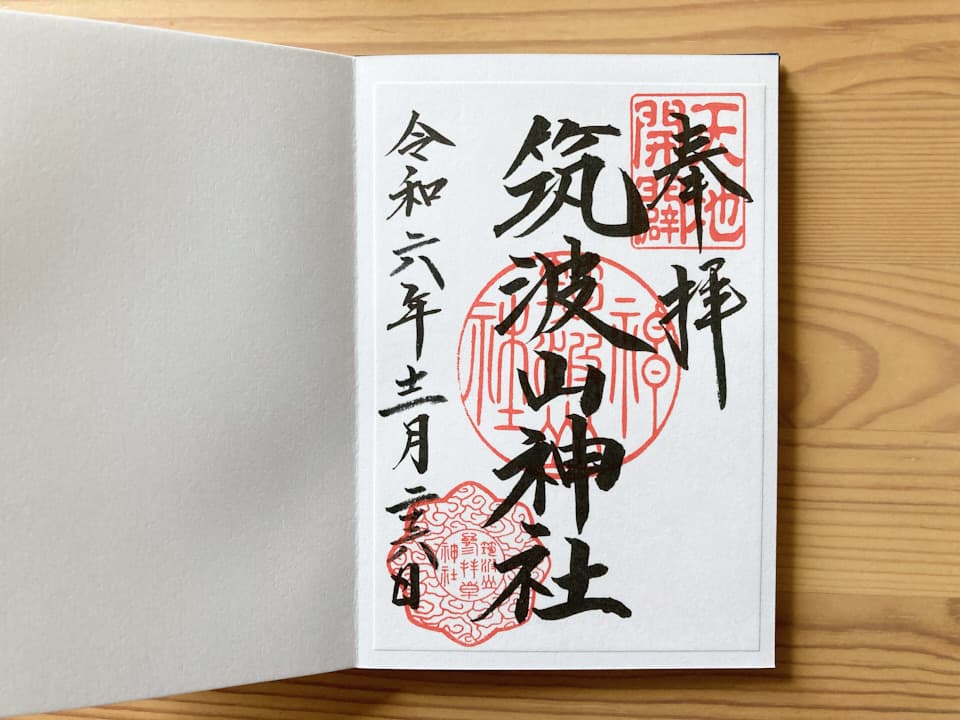 奉拝
天地
開闢
筑波山神社
筑波山
神
社
令和六年十二月二十八日
筑波山
参拝章
神社